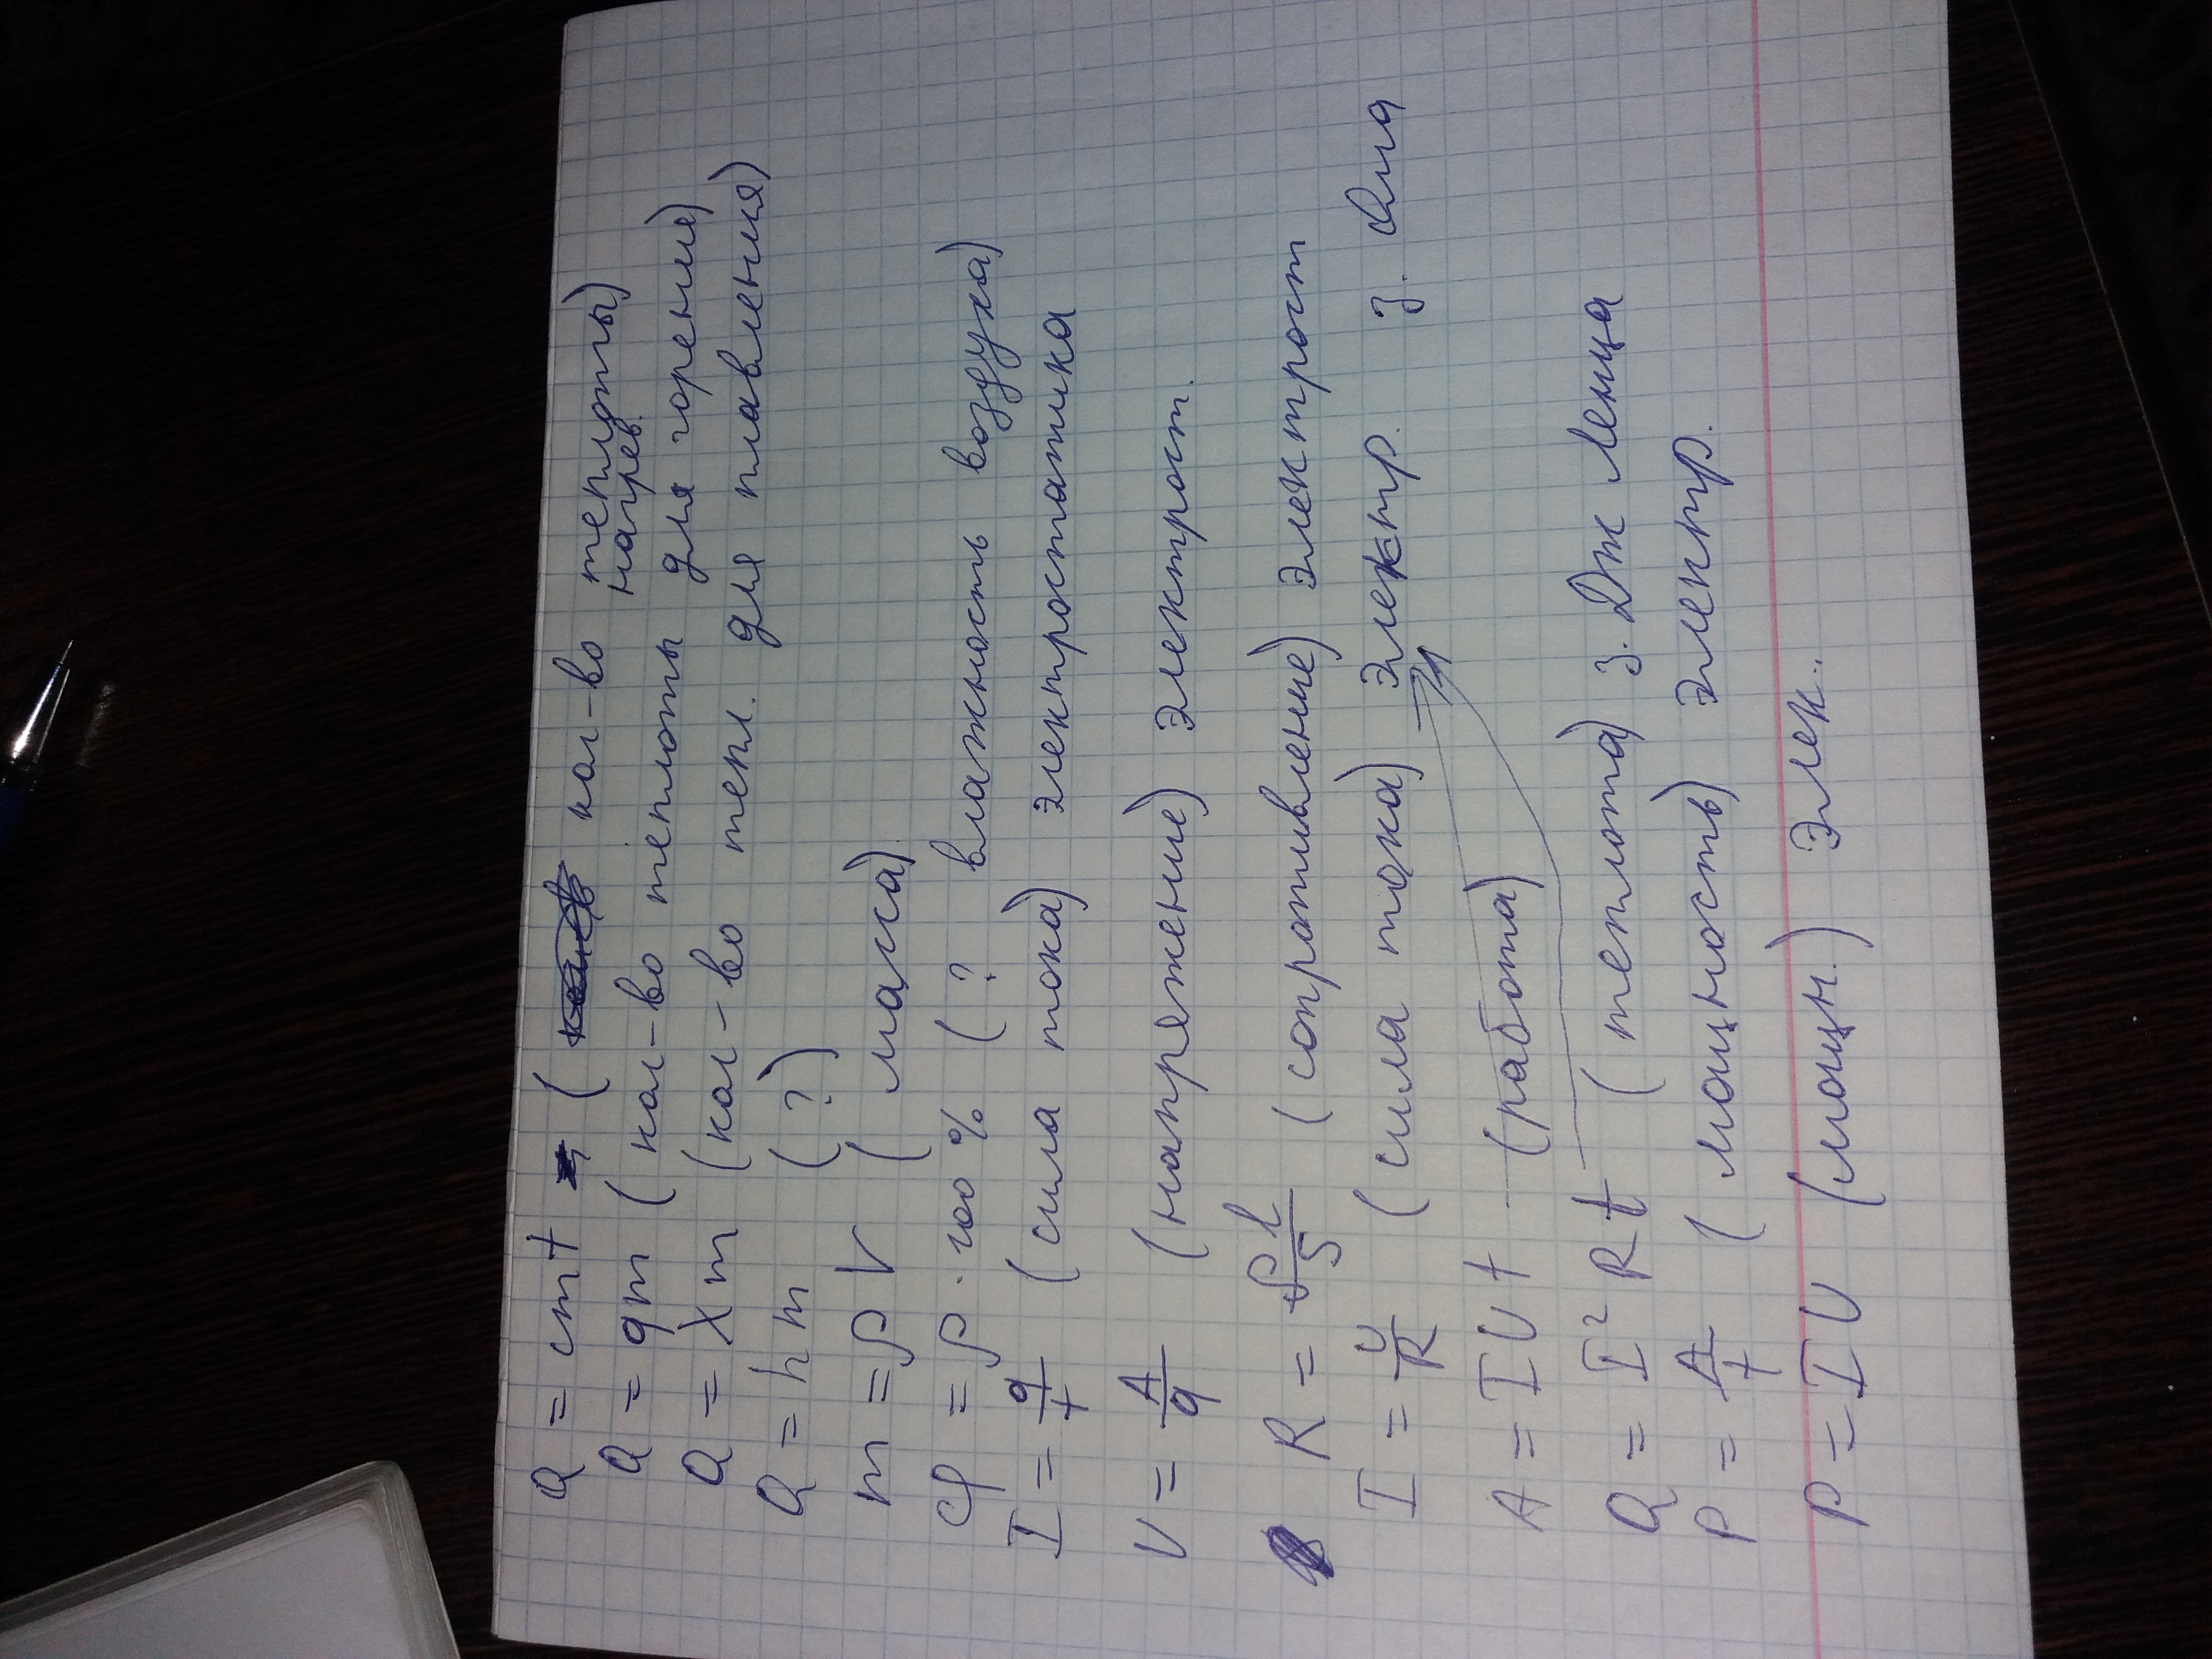 Q = cmt ( кол-во теплоты)
нагрев.
Q = qm ( кол-во теплоты для горения)
Q = λm (кол-во тепл. для плавления)
Q = hm (?)
m = ρV ( масса)
φ = ρ · 100 % ( ? влажность воздуха)
I = q/t (сила тока) электростатика
U = A/q (напряжение) электрост.
R = ρl/S (сопротивление) электрост
I = U/R ( сила тока) электр. з. Ома
A = IUt (работа)
Q = I² Rt ( теплота) з. Дж Ленца
P = A/t ( мощность) электр.
P = IU (мощн.) элек..